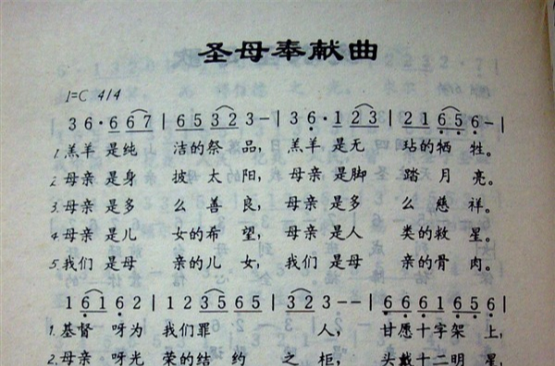 圣母奉献曲
1=C 4/4
3 6·6 6 7 | 6 5 3 2 3 - | 3 6·1 2 3 | 2 1 6 5 6 - |
1.羔羊是纯 洁的祭品, 羔羊是无 玷的牺牲。
2.母亲是身 披太阳, 母亲是脚 踏月亮。
3.母亲是多 么善良, 母亲是多 么慈祥。
4.母亲是儿 女的希望, 母亲是人 类的救星。
5.我们是母 亲的儿女, 我们是母 亲的骨肉。
1 6 1 6 2 | 1 2 3 5 6 5 | 3 2 3 - - | 6 6 6 1 6 5 6 |
1.基督呀为 我们罪 人, 甘愿十字架上,
2.母亲呀光 荣的结约 之柜, 头戴十二明星